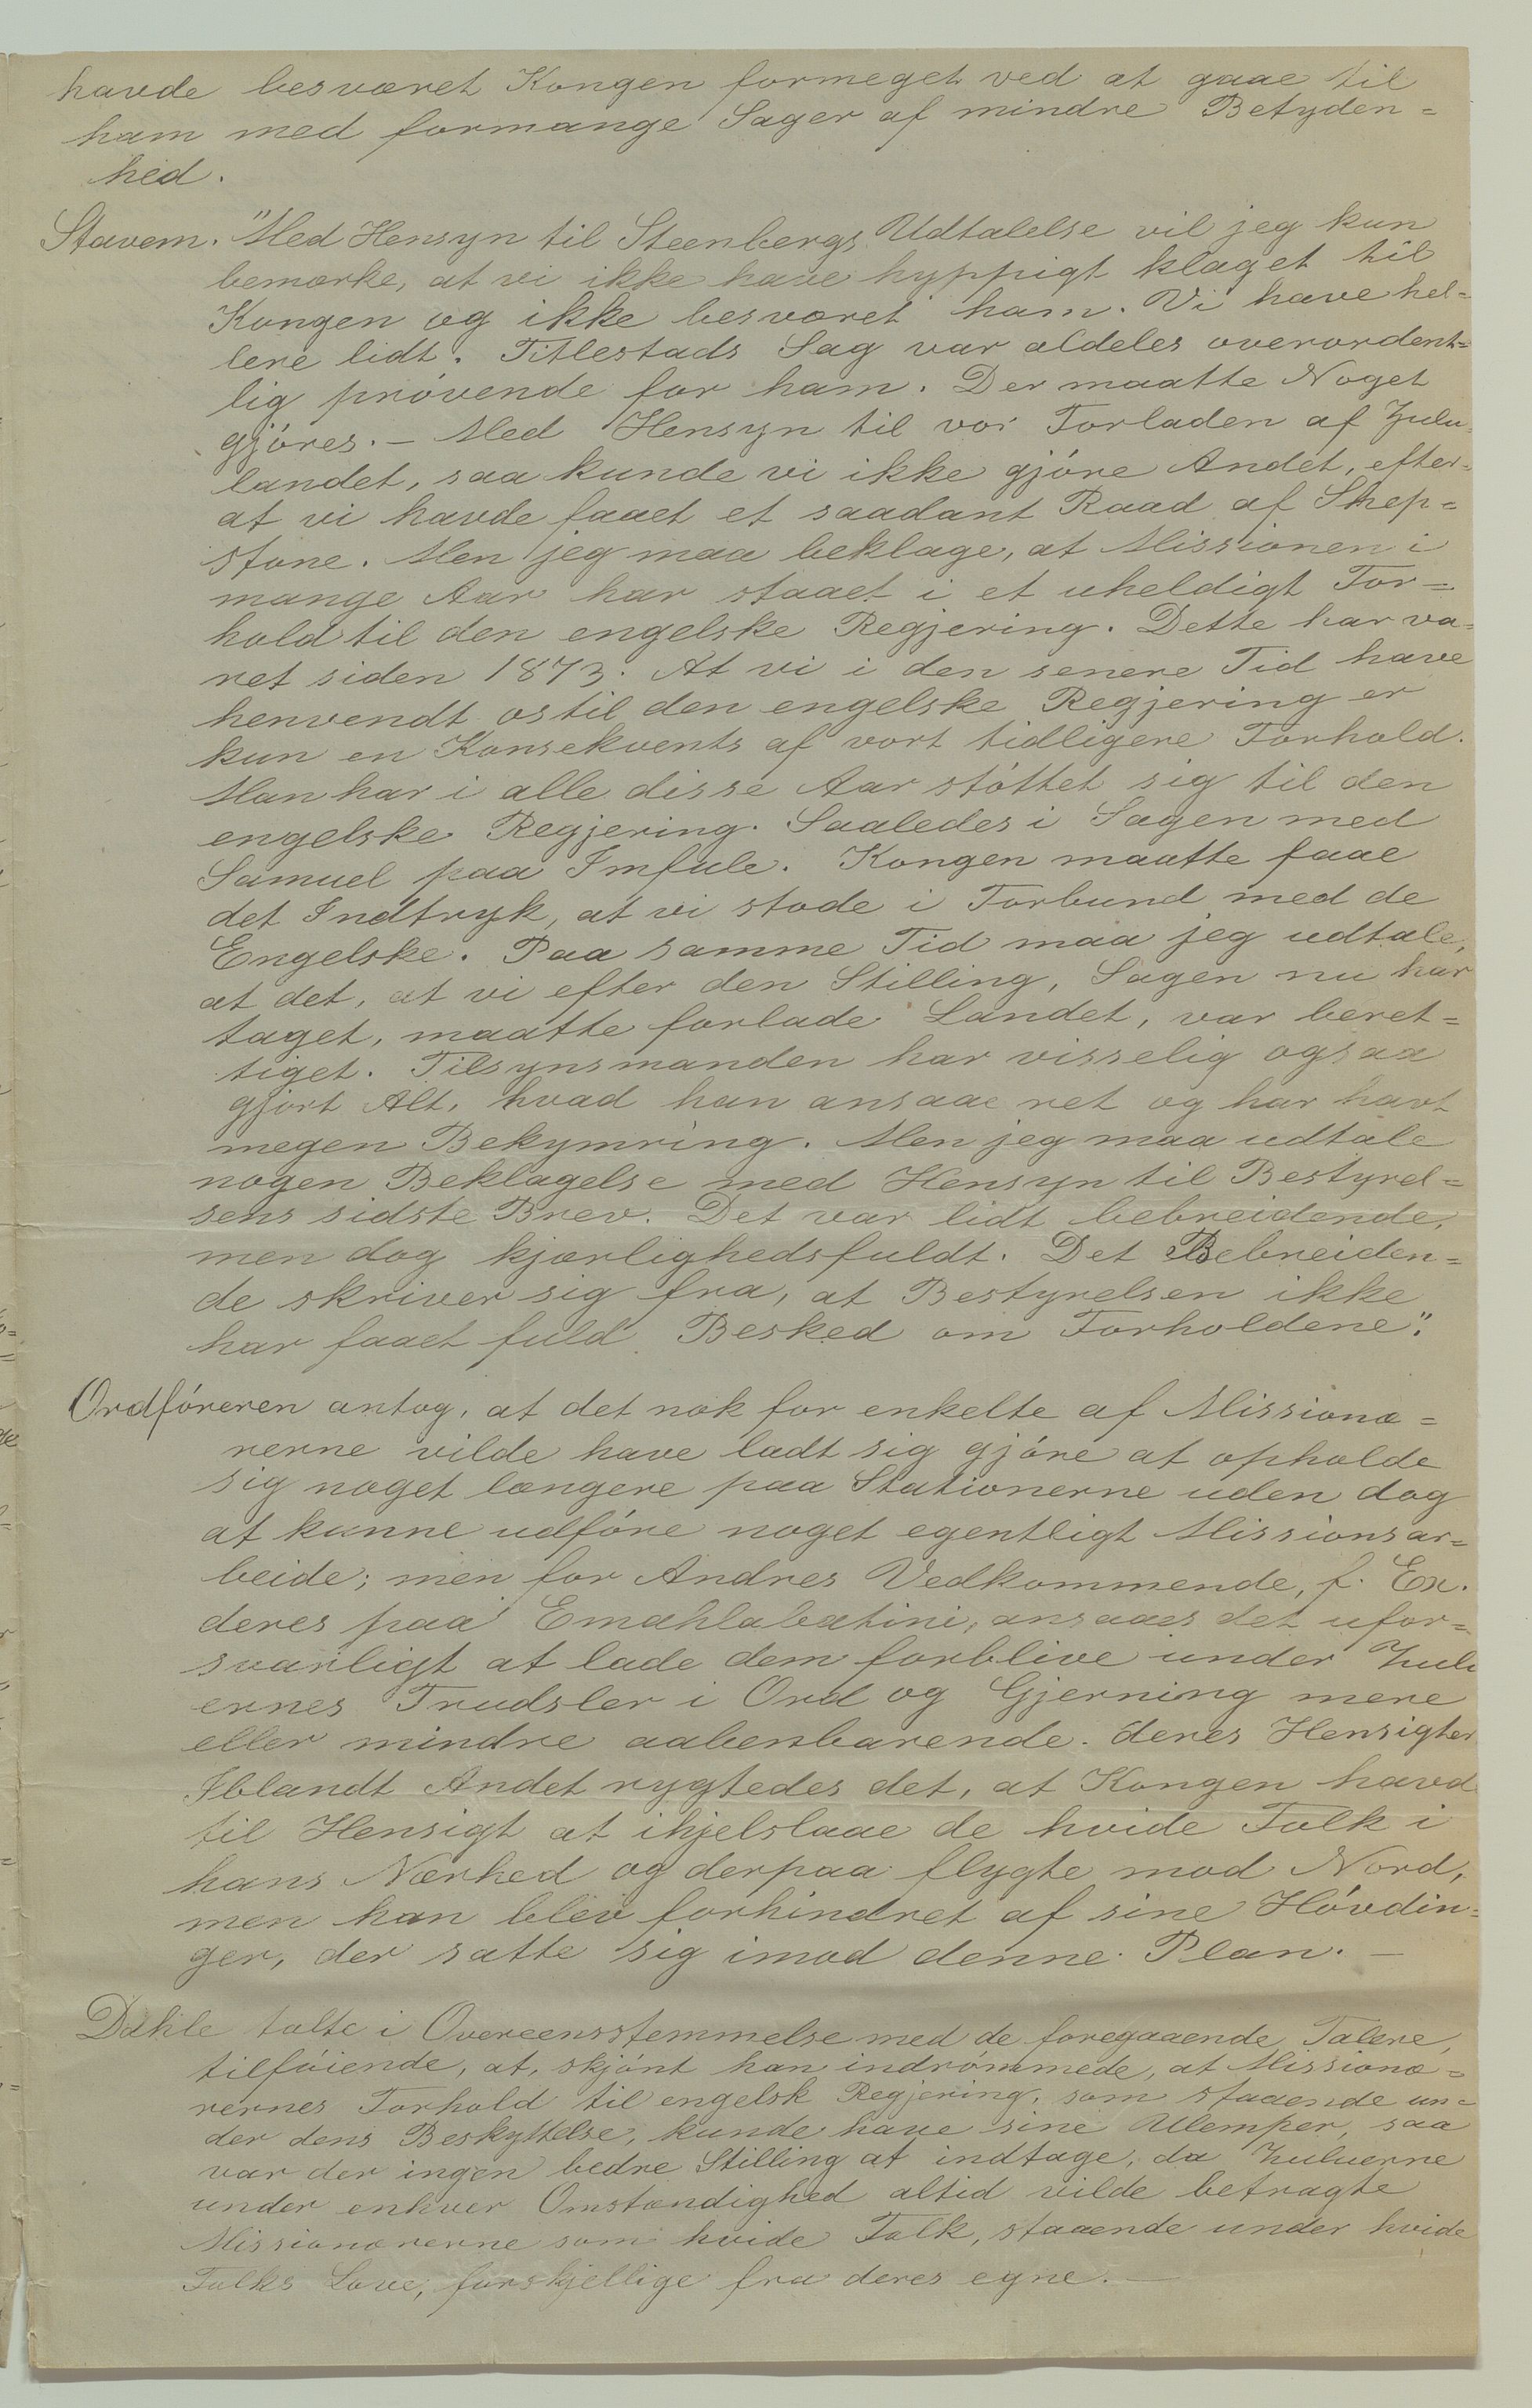 havde besværet Kongen formeget ved at gaae til
ham med formange Sager af mindre Betyden=
hed.
Stavem. "Med Hensyn til Steenbergs Udtalelse vil jeg kun
bemærke, at vi ikke have hyppigt klaget til
Kongen og ikke besværet ham. Vi have hel=
lere lidt. Titlestads Sag var aldeles overordent=
lig prøvende for ham. Der maatte Noget
gjøres. — Med Hensyn til vor Forladen af Zulu=
landet, saa kunde vi ikke gjøre Andet, efter=
at vi havde faaet et saadant Raad af Shep=
stone. Men jeg maa beklage, at Missionen i
mange Aar har staaet i et uheldigt For=
hold til den engelske Regjering. Dette har væ=
ret siden 1873. At vi i den senere Tid have
henvendt os til den engelske Regjering er
kun en Konsekvents af vort tidligere Forhold.
Man har i alle disse Aar støttet sig til den
engelske Regjering. Saaledes i Sagen med
Samuel paa Imfule. Kongen maatte faae
det Indtryk, at vi stode i Forbund med de
Engelske. Paa samme Tid maa jeg udtale,
at det, at vi efter den Stilling, Sagen nu har
taget, maatte forlade Landet, var beret=
tiget. Tilsynsmanden har visselig ogsaa
gjort Alt, hvad han ansaae ret og har havt
megen Bekymring. Men jeg maa udtale
nogen Beklagelse med Hensyn til Bestyrel=
sens sidste Brev. Det var lidt bebreidende,
men dog kjærlighedsfuldt. Det Bebreiden=
de skriver sig fra, at Bestyrelsen ikke
har faaet fuld Besked om Forholdene".
Ordføreren antog, at det nok for enkelte af Missionæ=
rerne vilde have ladt sig gjøre at opholde
sig noget længere paa Stationerne uden dog
at kunne udføre noget egentligt Missionsar=
beide; men for Andres Vedkommende, f. Ex.
deres paa Emahlabatini, ansaaes det ufor=
svarligt at lade dem forblive under Zulu
ernes Trudsler i Ord og Gjerning mere
eller mindre aabenbarende deres Hensigter
Iblandt Andet rygtedes det, at Kongen havd
til Hensigt at ihjelslaae de hvide Folk i
hans Nærhed og derpaa flygte mod Nord,
men han blev forhindret af sine Høvdin=
ger, der satte sig imod denne Plan. —
Dahle talte i Overeensstemmelse med de foregaaende Talere,
tilføiende, at, skjønt han indrømmede, at Missionæ=
rernes Forhold til engelsk Regjering, som staaende un=
der dens Beskyttelse, kunde have sine Ulemper, saa
var der ingen bedre Stilling at indtage, da Zuluerne
under enhver Omstændighed altid vilde betragte
Missionærerne som hvide Folk, staaende under hvide
Folks Love, forskjellige fra deres egne. —